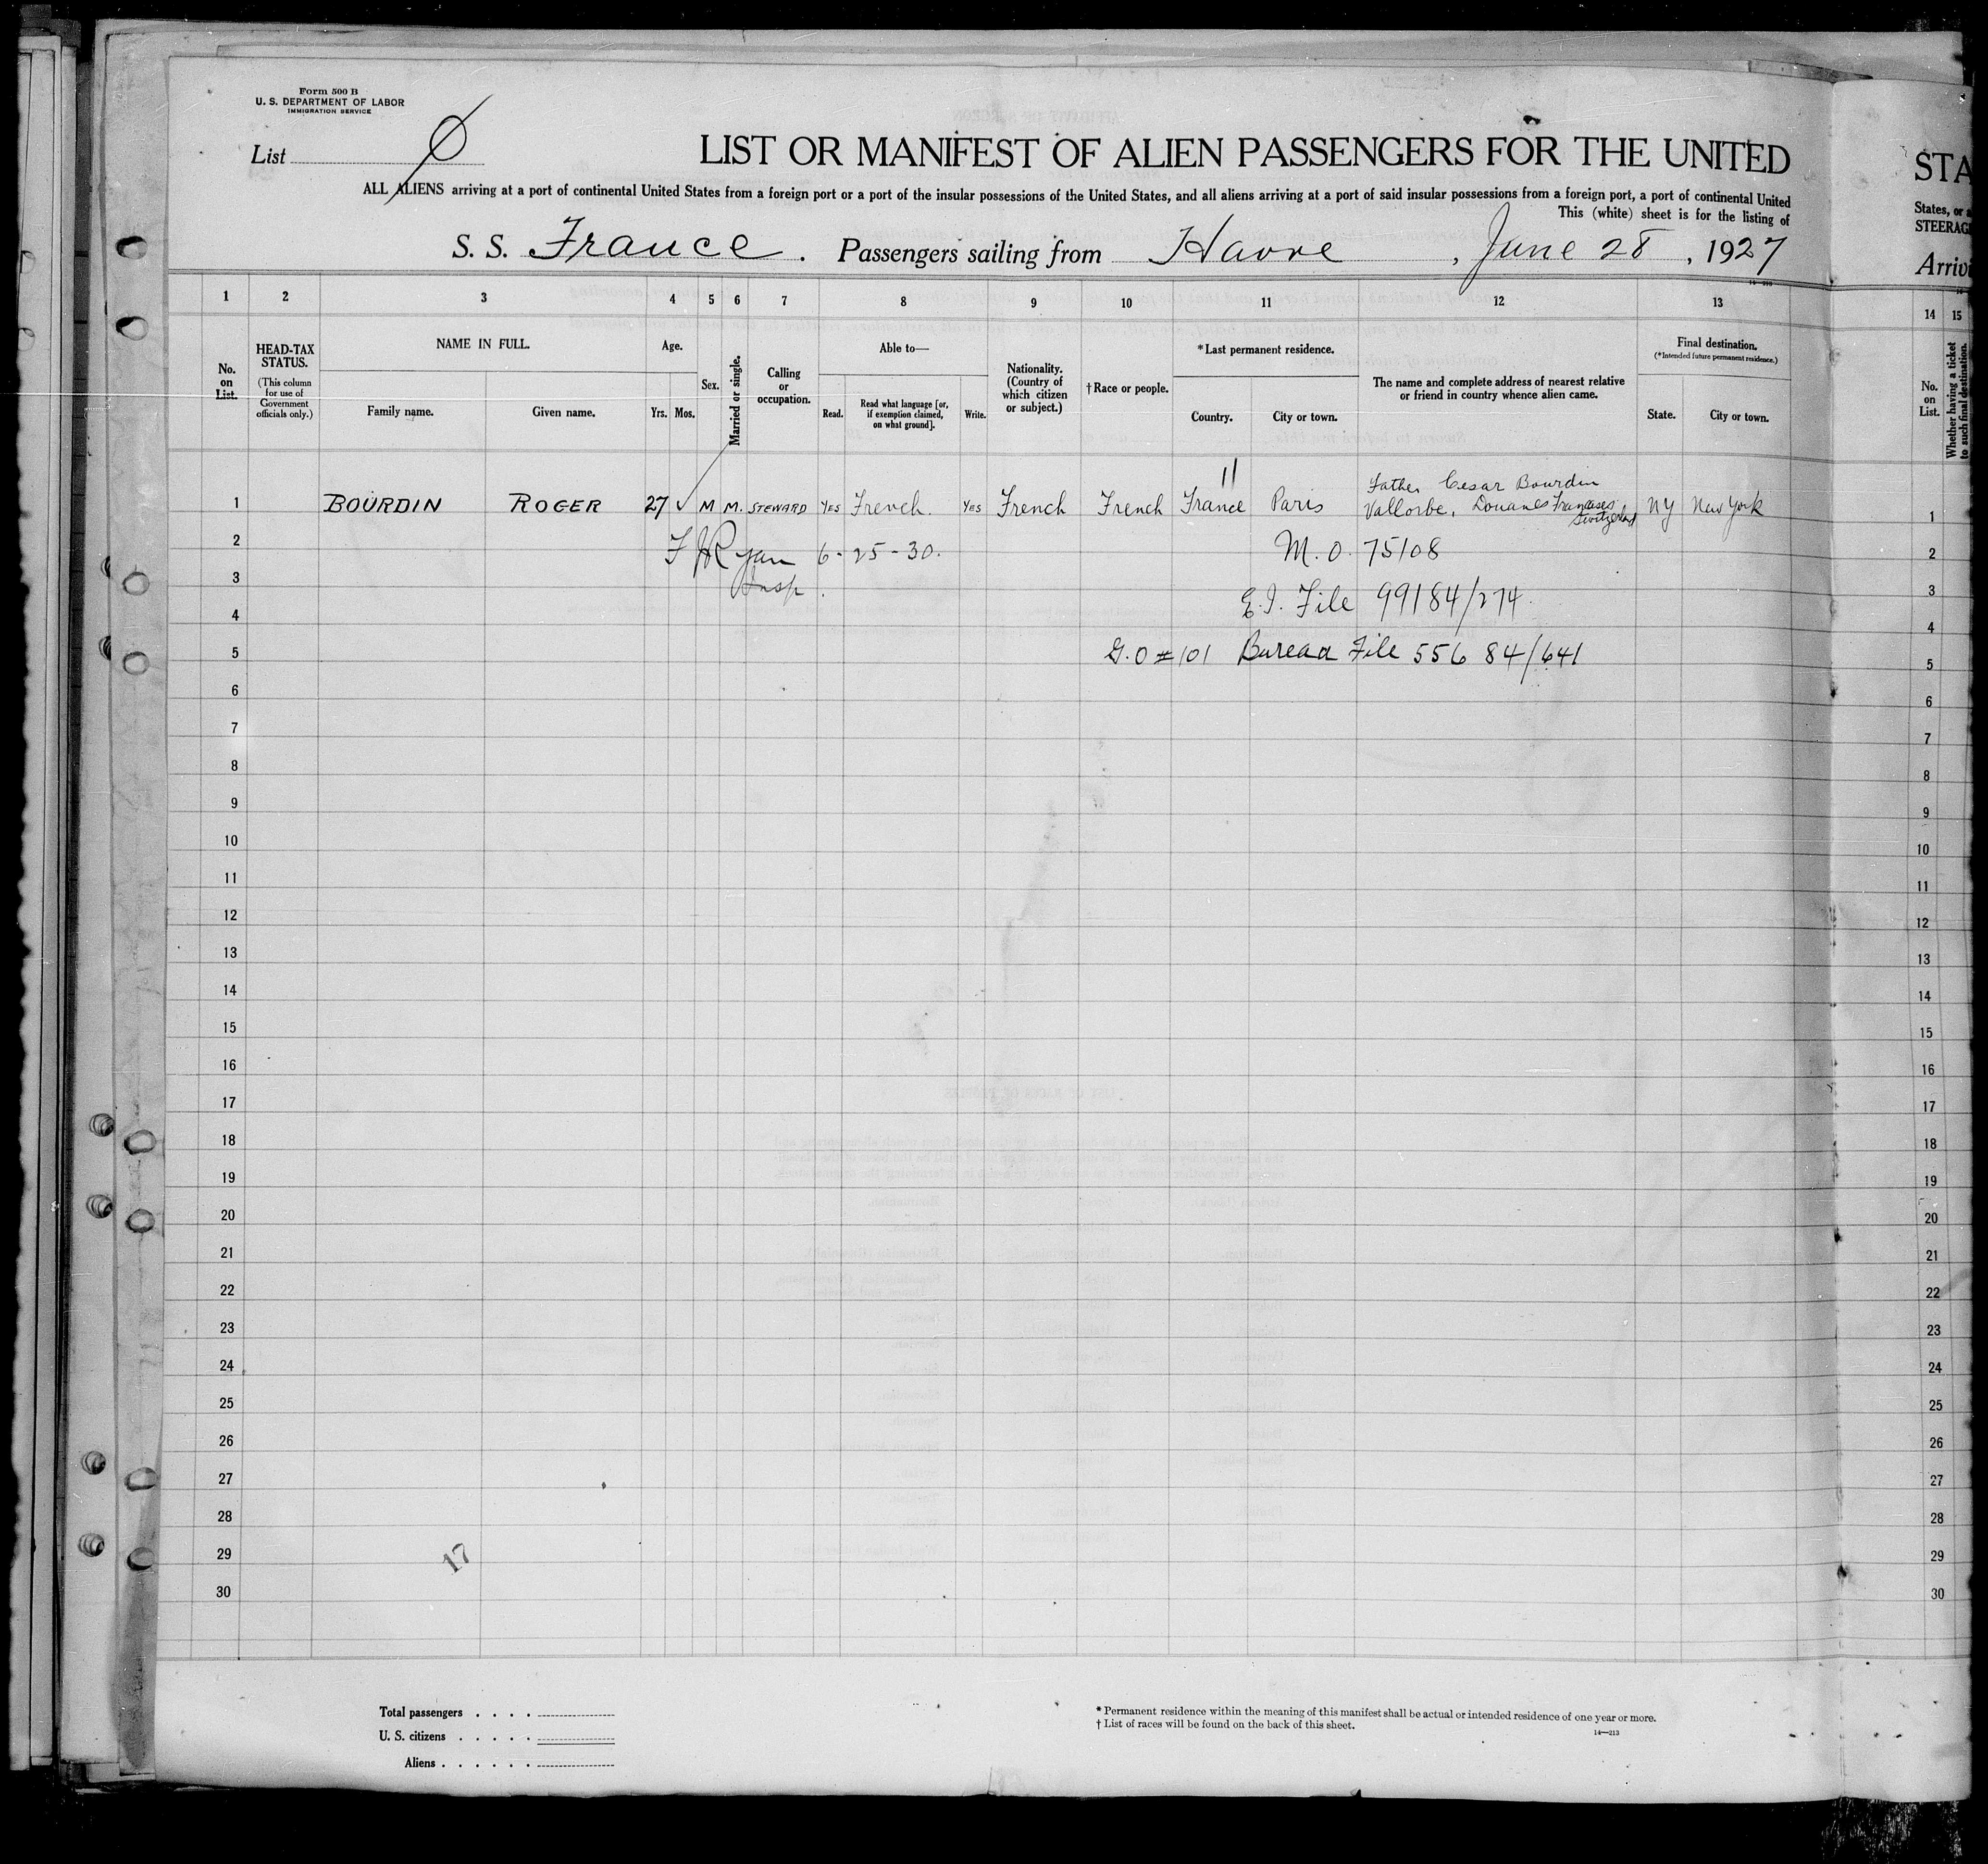 Form 500 B
U. S. DEPARTMENT OF LABOR
IMMIGRATION SERVICE
List
LIST OR MANIFEST OF ALIEN PASSENGERS FOR THE UNITED
ALL ALIENS arriving at a port of continental United States from a foreign port or a port of the insular possessions of the United States, and all aliens arriving at a port of said insular possessions from a foreign port, a port of continental United
This (white) sheet is for the listing of
S. S. France. Passengers sailing from Havre, June 28, 1927
14—213
1 2 3 4 5 6 7 8 9 10 11 12 13
No. on List.
HEAD-TAX STATUS.
(This column for use of Government officials only.)
NAME IN FULL.
Family name. Given name.
Age.
Yrs. Mos.
Sex.
Married or single.
Calling or occupation.
Able to—
Read. Read what language [or, if exemption claimed, on what ground]. Write.
Nationality. (Country of which citizen or subject.)
†Race or people.
*Last permanent residence.
Country. City or town.
The name and complete address of nearest relative or friend in country whence alien came.
Final destination.
(*Intended future permanent residence.)
State. City or town.
11
Father Cesar Bourdin
1 BOURDIN ROGER 27 M M. STEWARD YES French. YES French French France Paris Vallorbe, Douanes Francaises Switzerland NY New York
2 F J Ryan 6-25-30. M. O. 75108
Insp.
3 E.I. File 99184/274.
4
5 G.O #101 Bureau File 55684/641
6
7
8
9
10
11
12
13
14
15
16
17
18
19
20
21
22
23
24
25
26
27
28
29
17
30
Total passengers . . . .
U. S. citizens . . . . .
Aliens . . . . . .
* Permanent residence within the meaning of this manifest shall be actual or intended residence of one year or more.
† List of races will be found on the back of this sheet.
14—213
STA
States, or a
STEERAG
Arrivi
14 15
No. on List.
Whether having a ticket to such final destination.
1
2
3
4
5
6
7
8
9
10
11
12
13
14
15
16
17
18
19
20
21
22
23
24
25
26
27
28
29
30